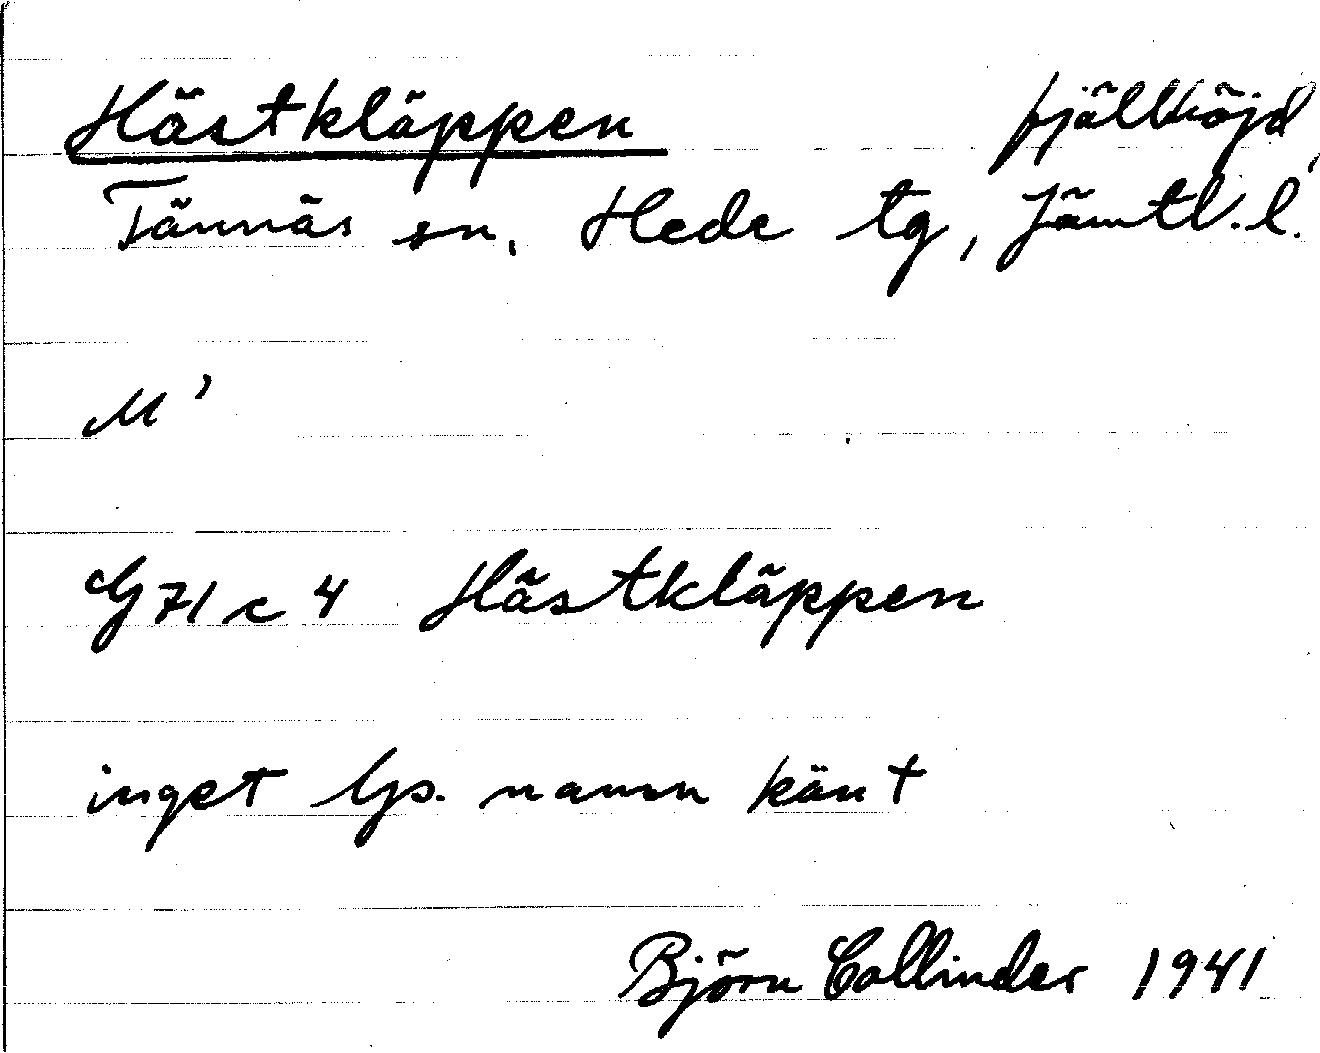 Hästkläppen fjällhöjd,
Tännäs sn, Hede tg, Jämtl. l.
M'
G 71 c 4 Hästkläppen
inget lp. namn känt
Björn Collinder 1941